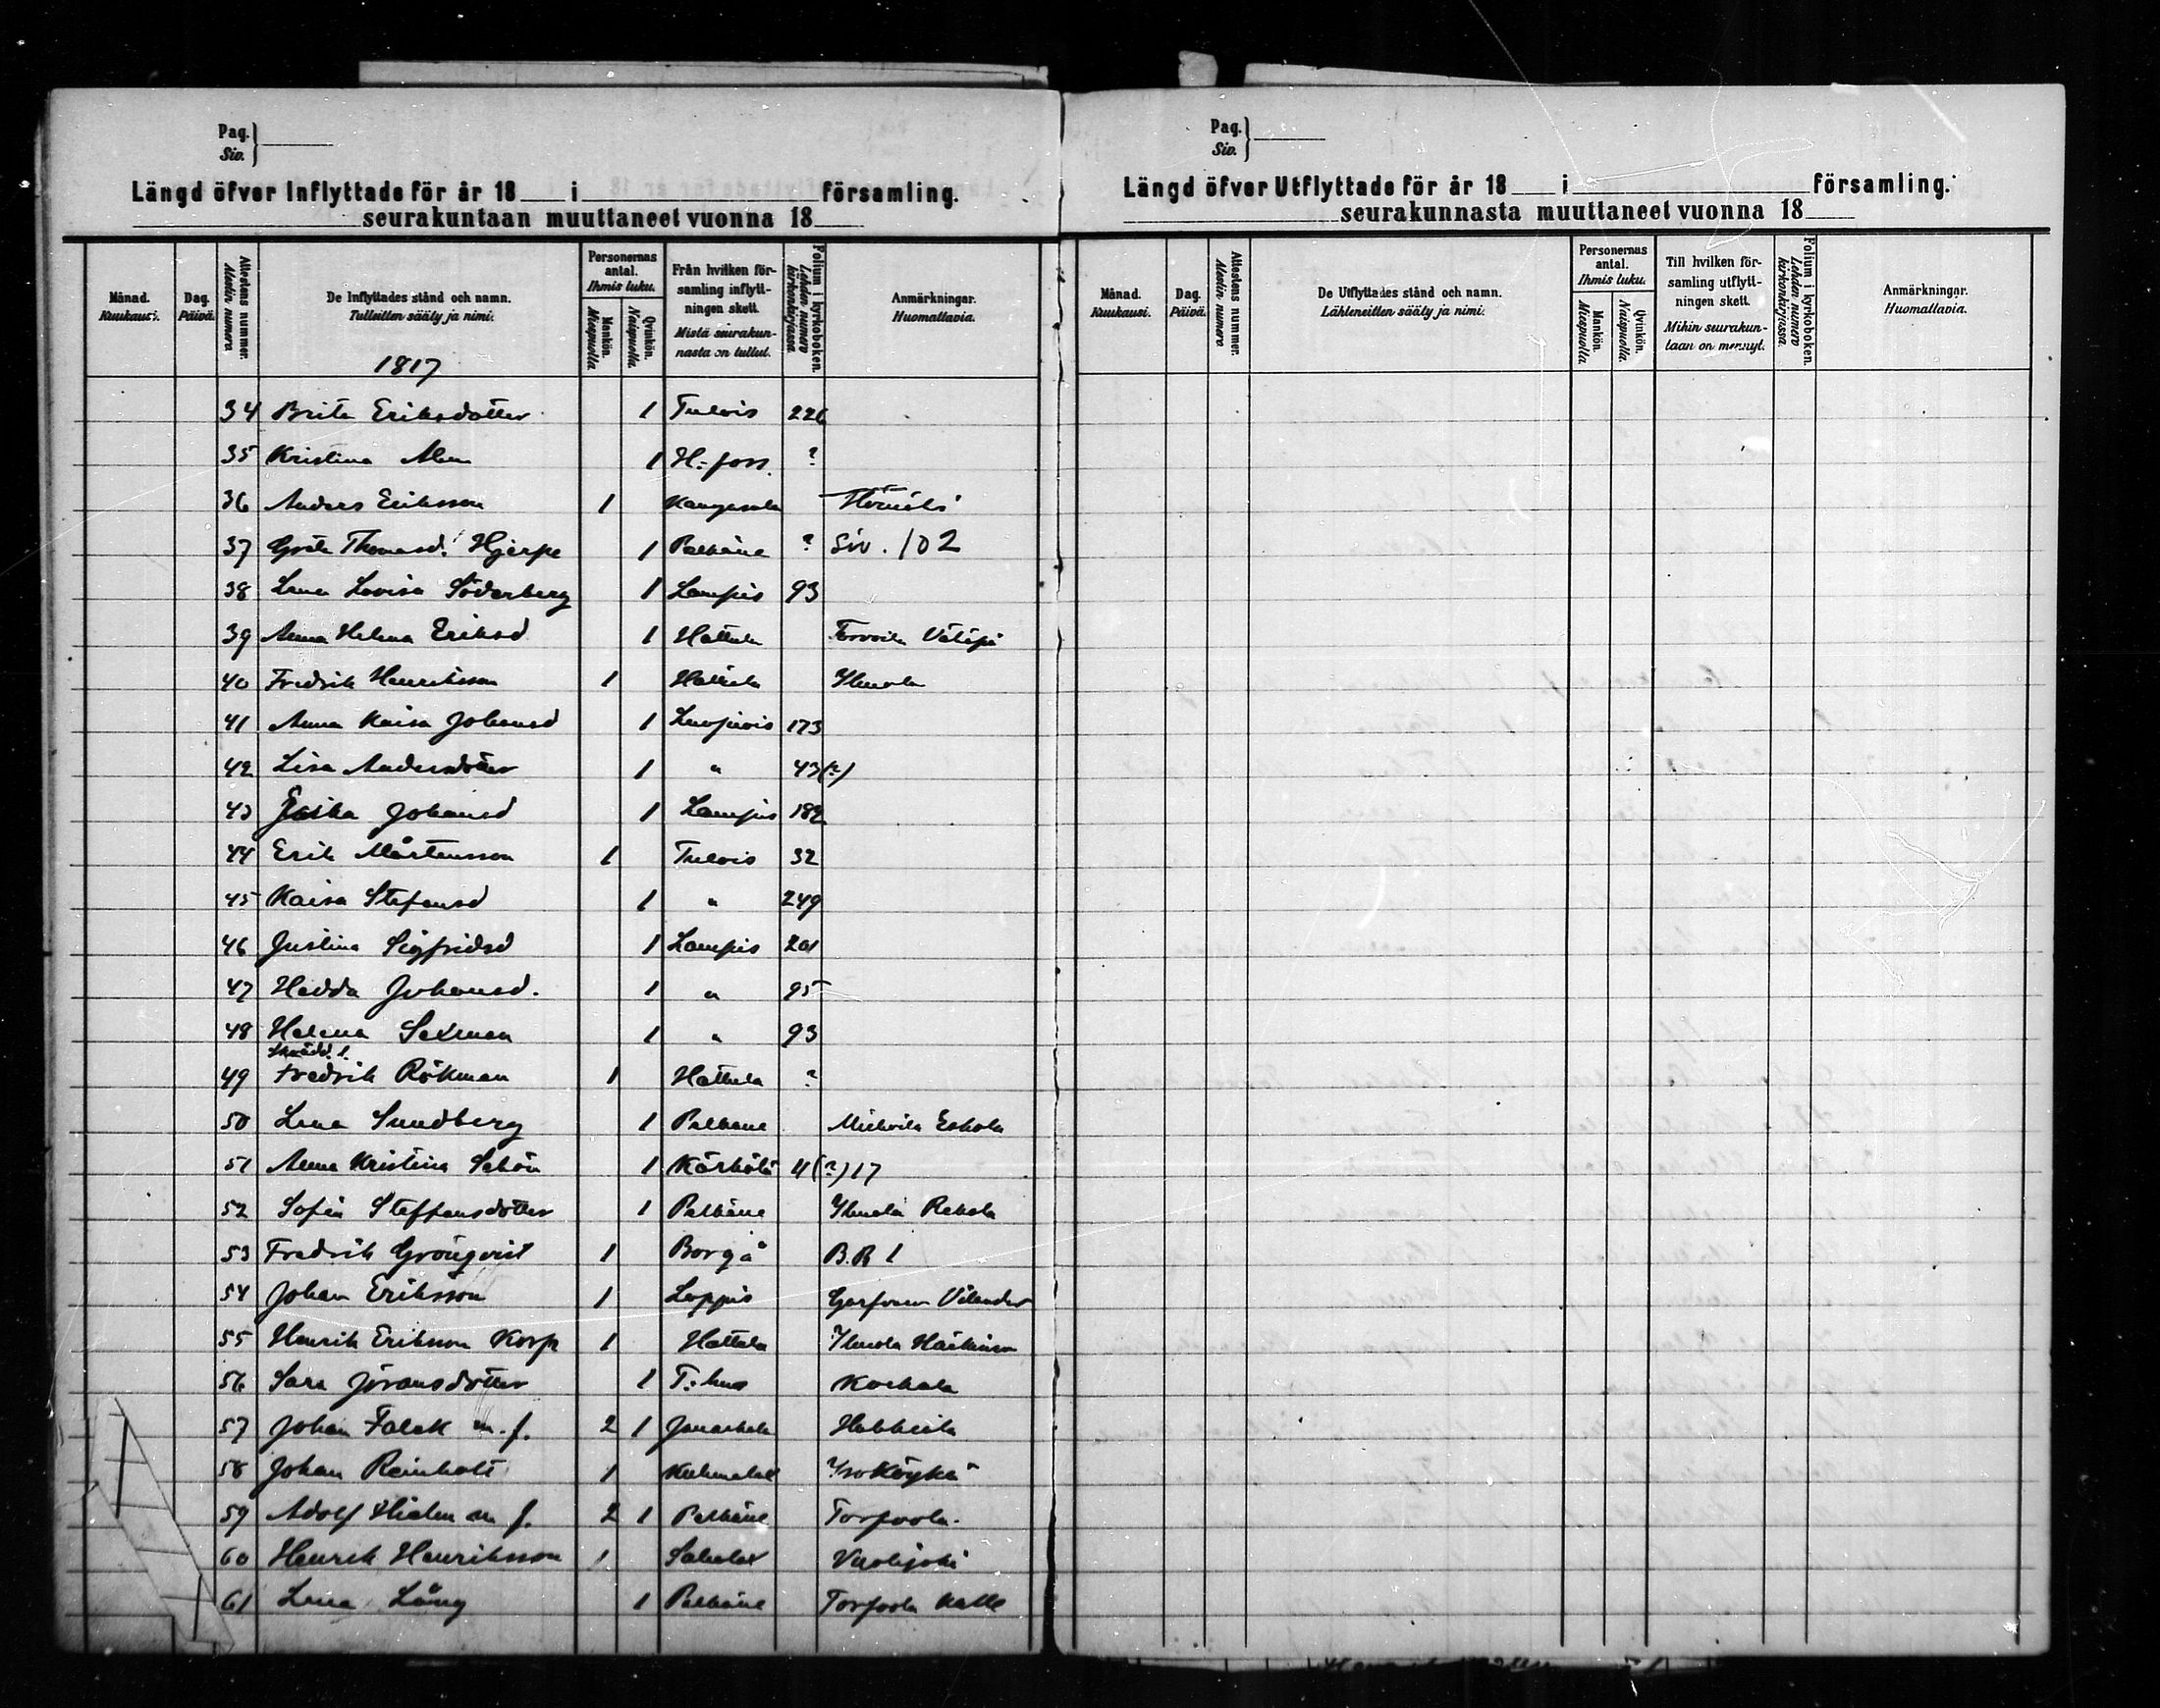 Pag.
Siv.
Längd öfver Inflyttade för år 18 i församling.
seurakuntaan muuttaneet vuonna 18
Månad. Kuukausi. Dag. Päivä. Attestens nummer. Alestin numero. De Inflyttades stånd och namn. Tulleitten sääty ja nimi. Personernas antal. Ihmis luku. Mankön. Miespuolia. Qvinkön. Naispuolia. Från hvilken församling inflyttningen skett. Mistä seurakunnasta on tullut. Folium i kyrkoboken. Lehden numero kirkonkirjassa. Anmärkningar. Huomattavia.
1817
34 Brita Eriksdotter 1 Tulois 226
35 Kristina 1 H:fors. ?
36 Anders Eriksson 1 Kangasala
37 Greta Thomasd. Hjerpe 1 Pälkäne ? Siv. 102
38 Lena Lovisa Söderberg 1 Lampis 93
39 Anna Helena Eriksd 1 Hattula
40 Fredrik Henriksson 1 Hattula Ihmola
41 Anna Kaisa Johansd 1 173
42 Lisa Andersdotter 1 " 43(?)
43 Johansd 1 Lampis 182
44 Erik Mårtensson 1 Tulois 32
45 Kaisa Stefansd 1 " 249
46 Justina Sigfridsd 1 Lampis 201
47 Hedda Johansd. 1 " 95
48 Helena 1 " 93
49 Fredrik Rökman 1 Hattula ?
50 Lena Sundberg 1 Pälkäne Eskola
51 Anna Kristina Schön 1 Kärkölä 4(?)17
52 Sofia Steffansdotter 1 Pälkäne Ihmola Rekola
53 Fredrik Grönqvist 1 Borgå B.R 1
54 Johan Eriksson 1 Loppis
55 Henrik Eriksson Korp 1 Hattula Ihmola
56 Sara Göransdotter 1 T:hus
57 Johan Falck m. f. 2 1 Janakkala
58 Johan Reinholt 1 Kuhmalax
59 Adolf m f. 2 1 Pälkäne Torvoila
60 Henrik Henriksson 1 Sahalax Vuolijoki
61 Lena Lång 1 Pälkäne Kalle
Pag.
Siv.
Längd öfver Utflyttade för år 18 i församling.
seurakunnasta muuttaneet vuonna 18
Månad. Kuukausi. Dag. Päivä. Attestens nummer. Alestin numero. De Utflyttades stånd och namn. Lähteneitten sääty ja nimi. Personernas antal. Ihmis luku. Mankön. Miespuolia. Qvinkön. Naispuolia. Till hvilken församling utflyttningen skett. Mihin seurakuntaan on mennyt. Folium i kyrkoboken. Lehden numero kirkonkirjassa. Anmärkningar. Huomattavia.